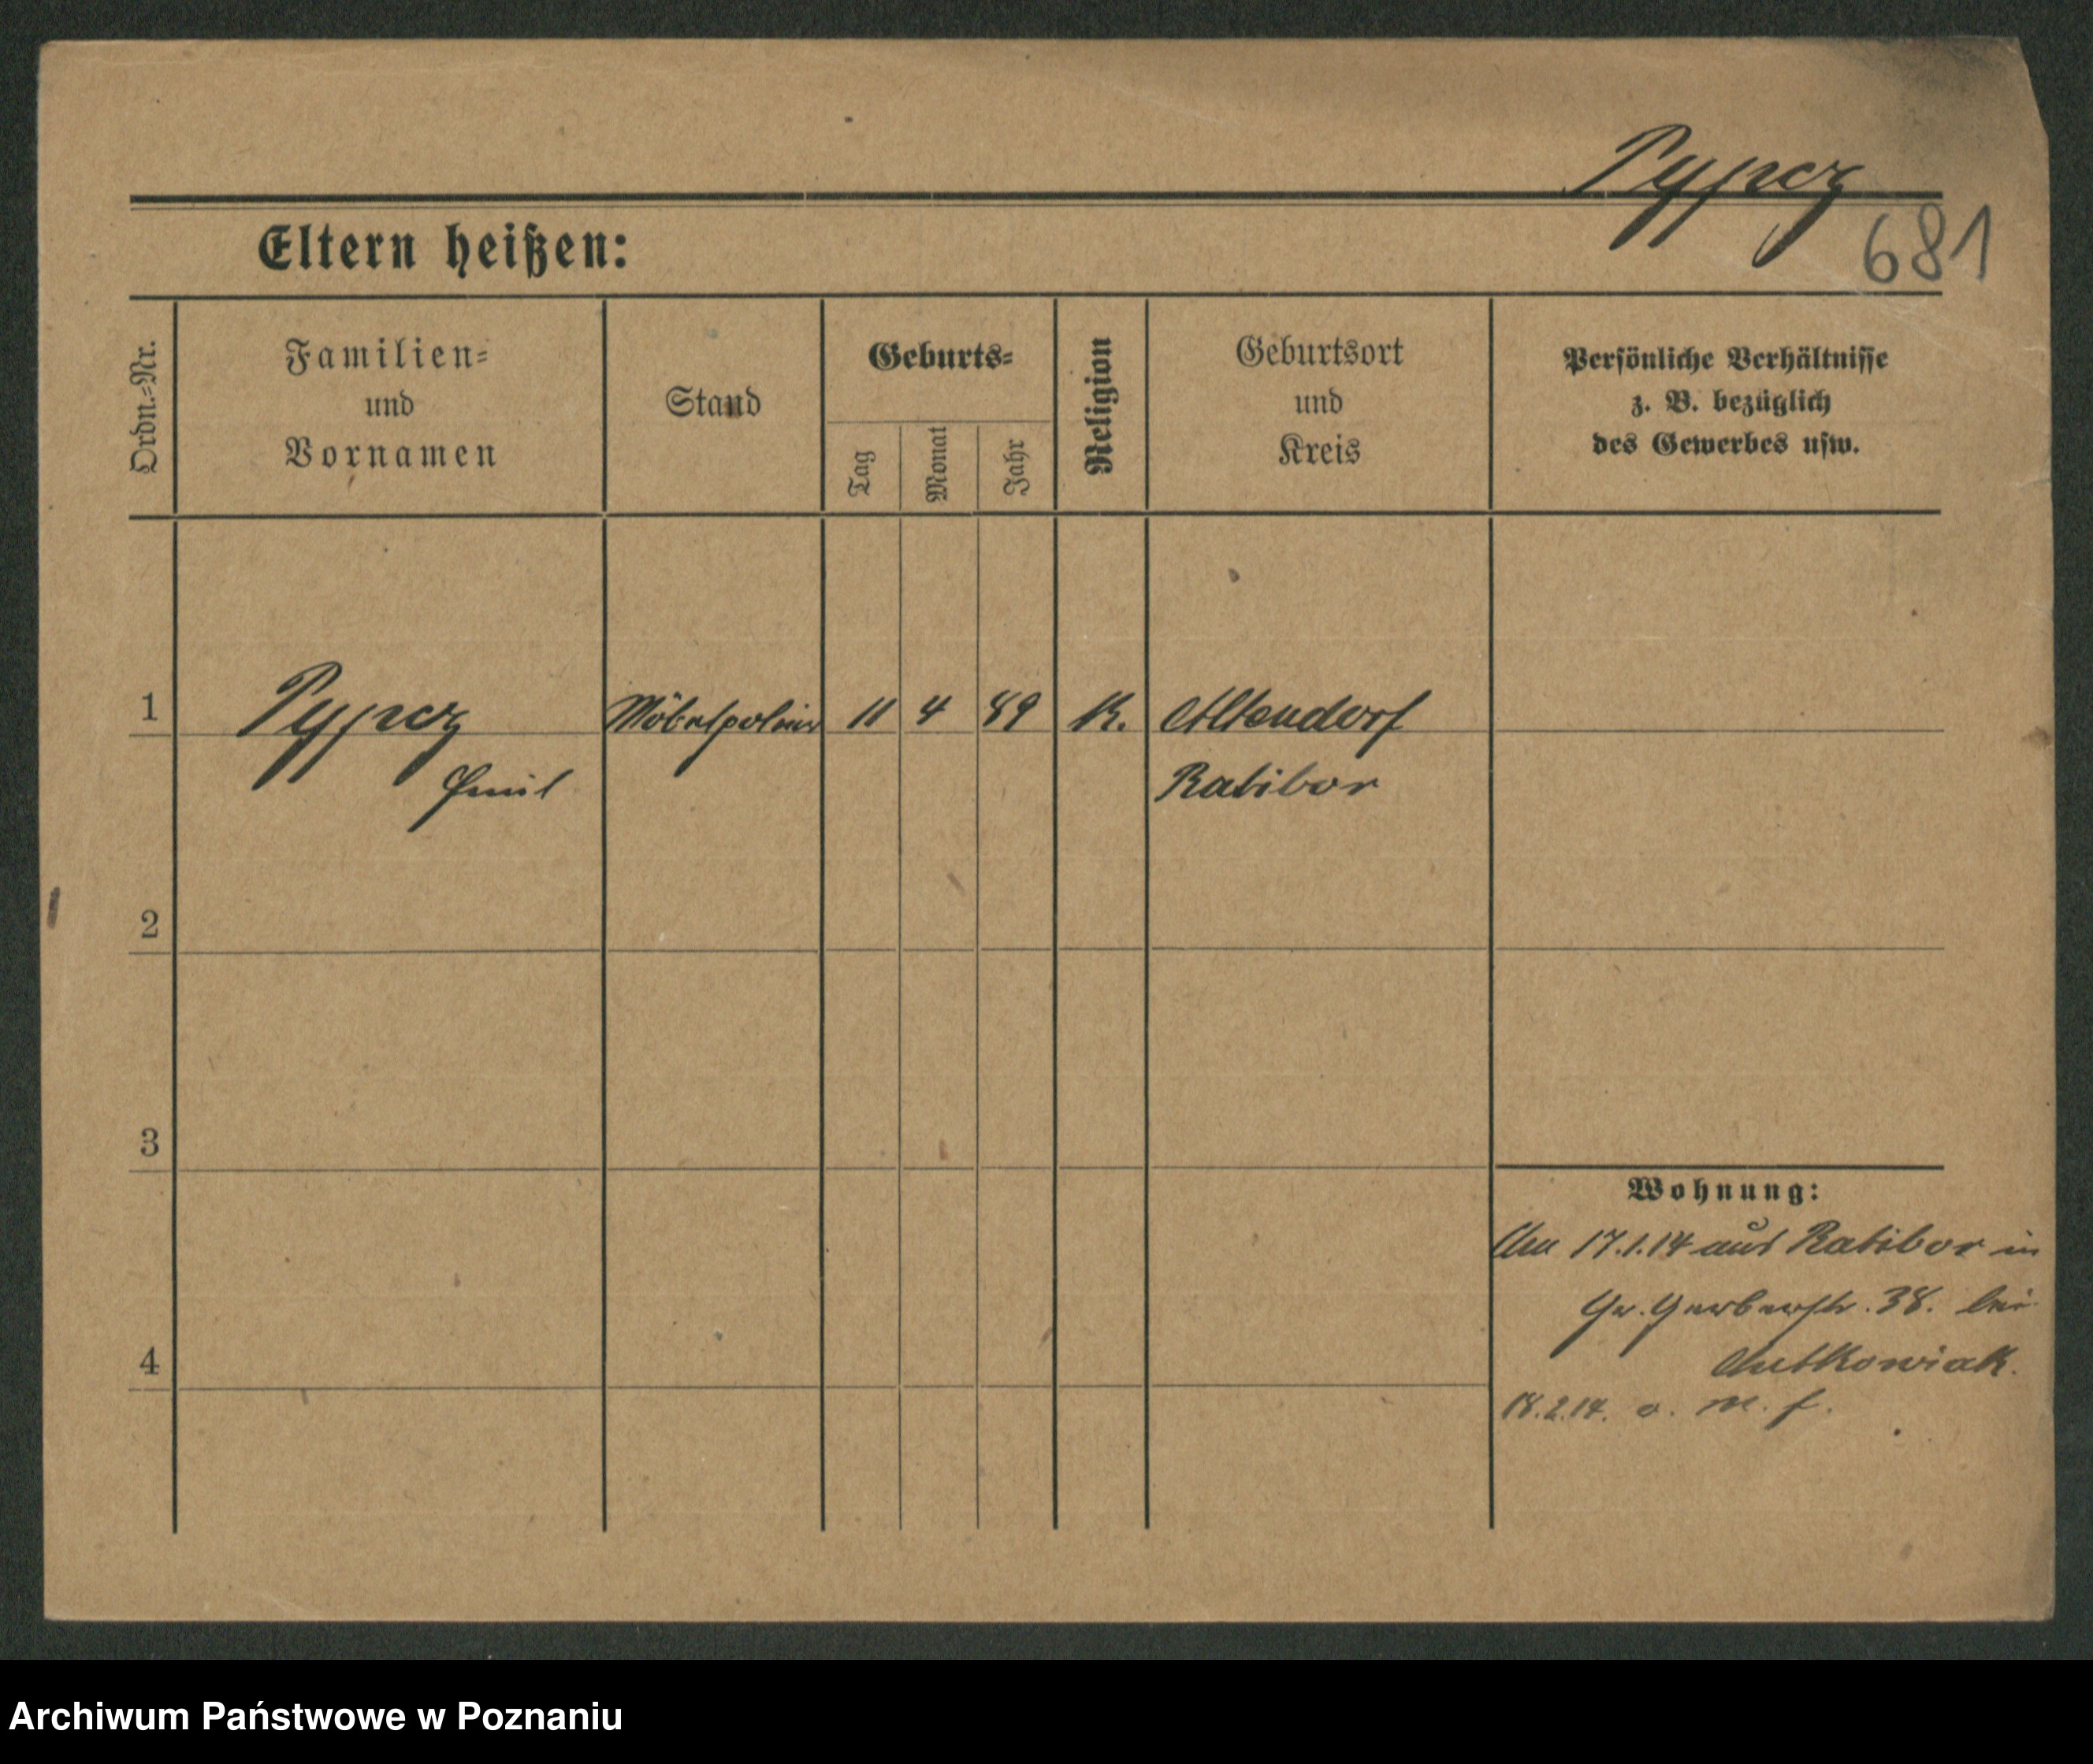 Pypcz
681
Eltern heißen:
Ordn.=Nr.
Familien=
und
Vornamen
Stand
Geburts=
Tag
Monat
Jahr
Religion
Geburtsort
und
Kreis
Persönliche Verhältnisse
z. B. bezüglich
des Gewerbes usw.
1 Pypcz Möbelpolier 11 4 89 K. Altendorf
Emil Ratibor
2
3
Wohnung:
Am 17.1.14 aus Ratibor in
Gr. Gerberstr. 38. bei
4
Antkowiak.
18.2.14. o. M. f.
Archiwum Państwowe w Poznaniu